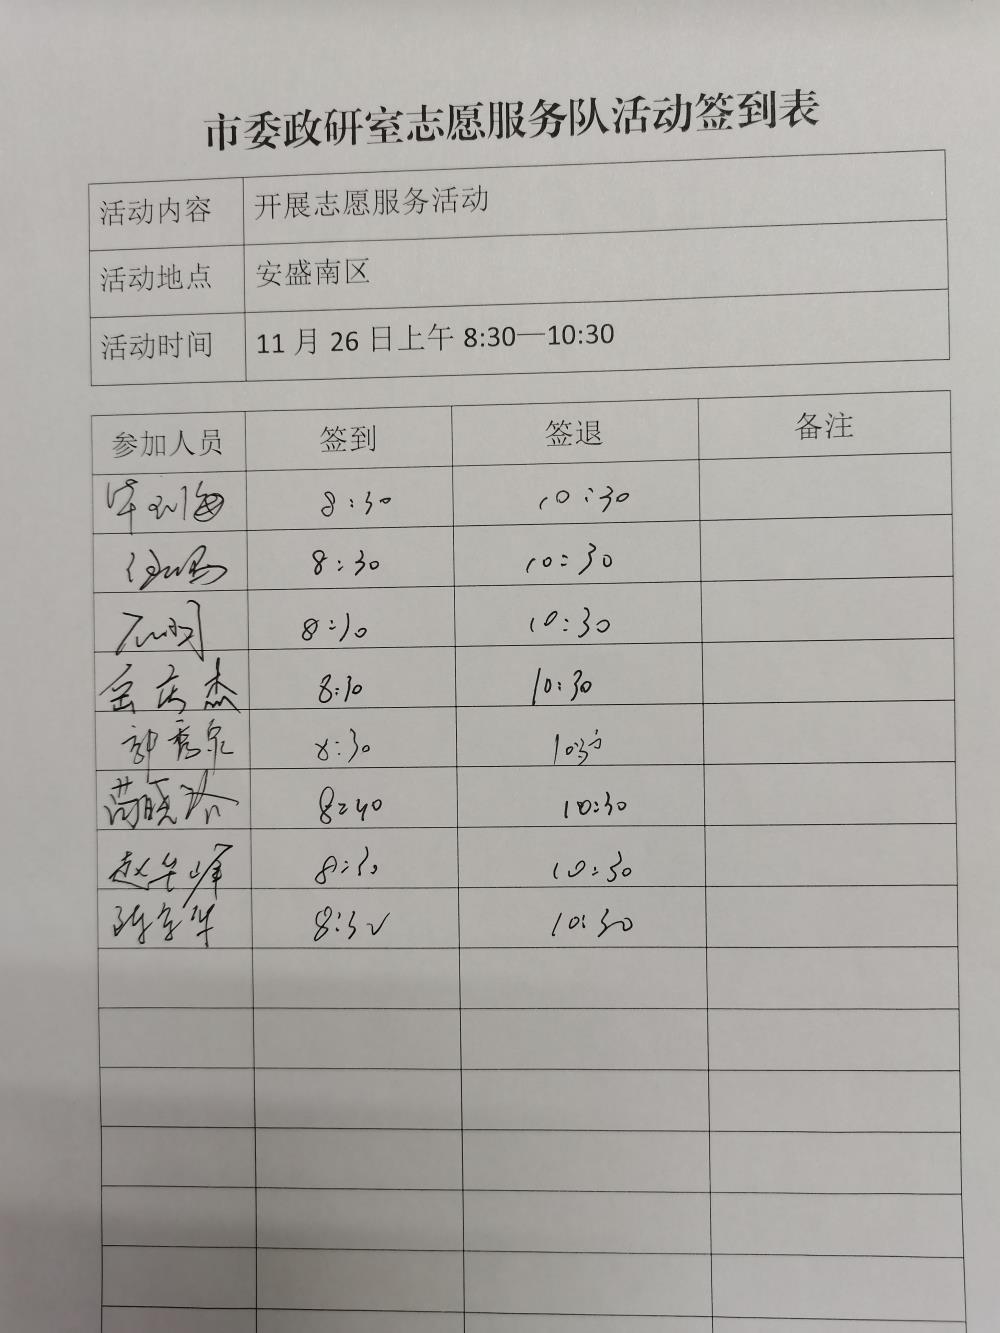 市委政研室志愿服务队活动签到表
活动内容 开展志愿服务活动
活动地点 安盛南区
活动时间 11月26日上午8:30—10:30
参加人员 签到 签退 备注
8:30 10:30
8:30 10:30
8:30 10:30
8:30 10:30
郭秀泉 8:30 10:30
8:40 10:30
赵华峰 8:30 10:30
8:30 10:30